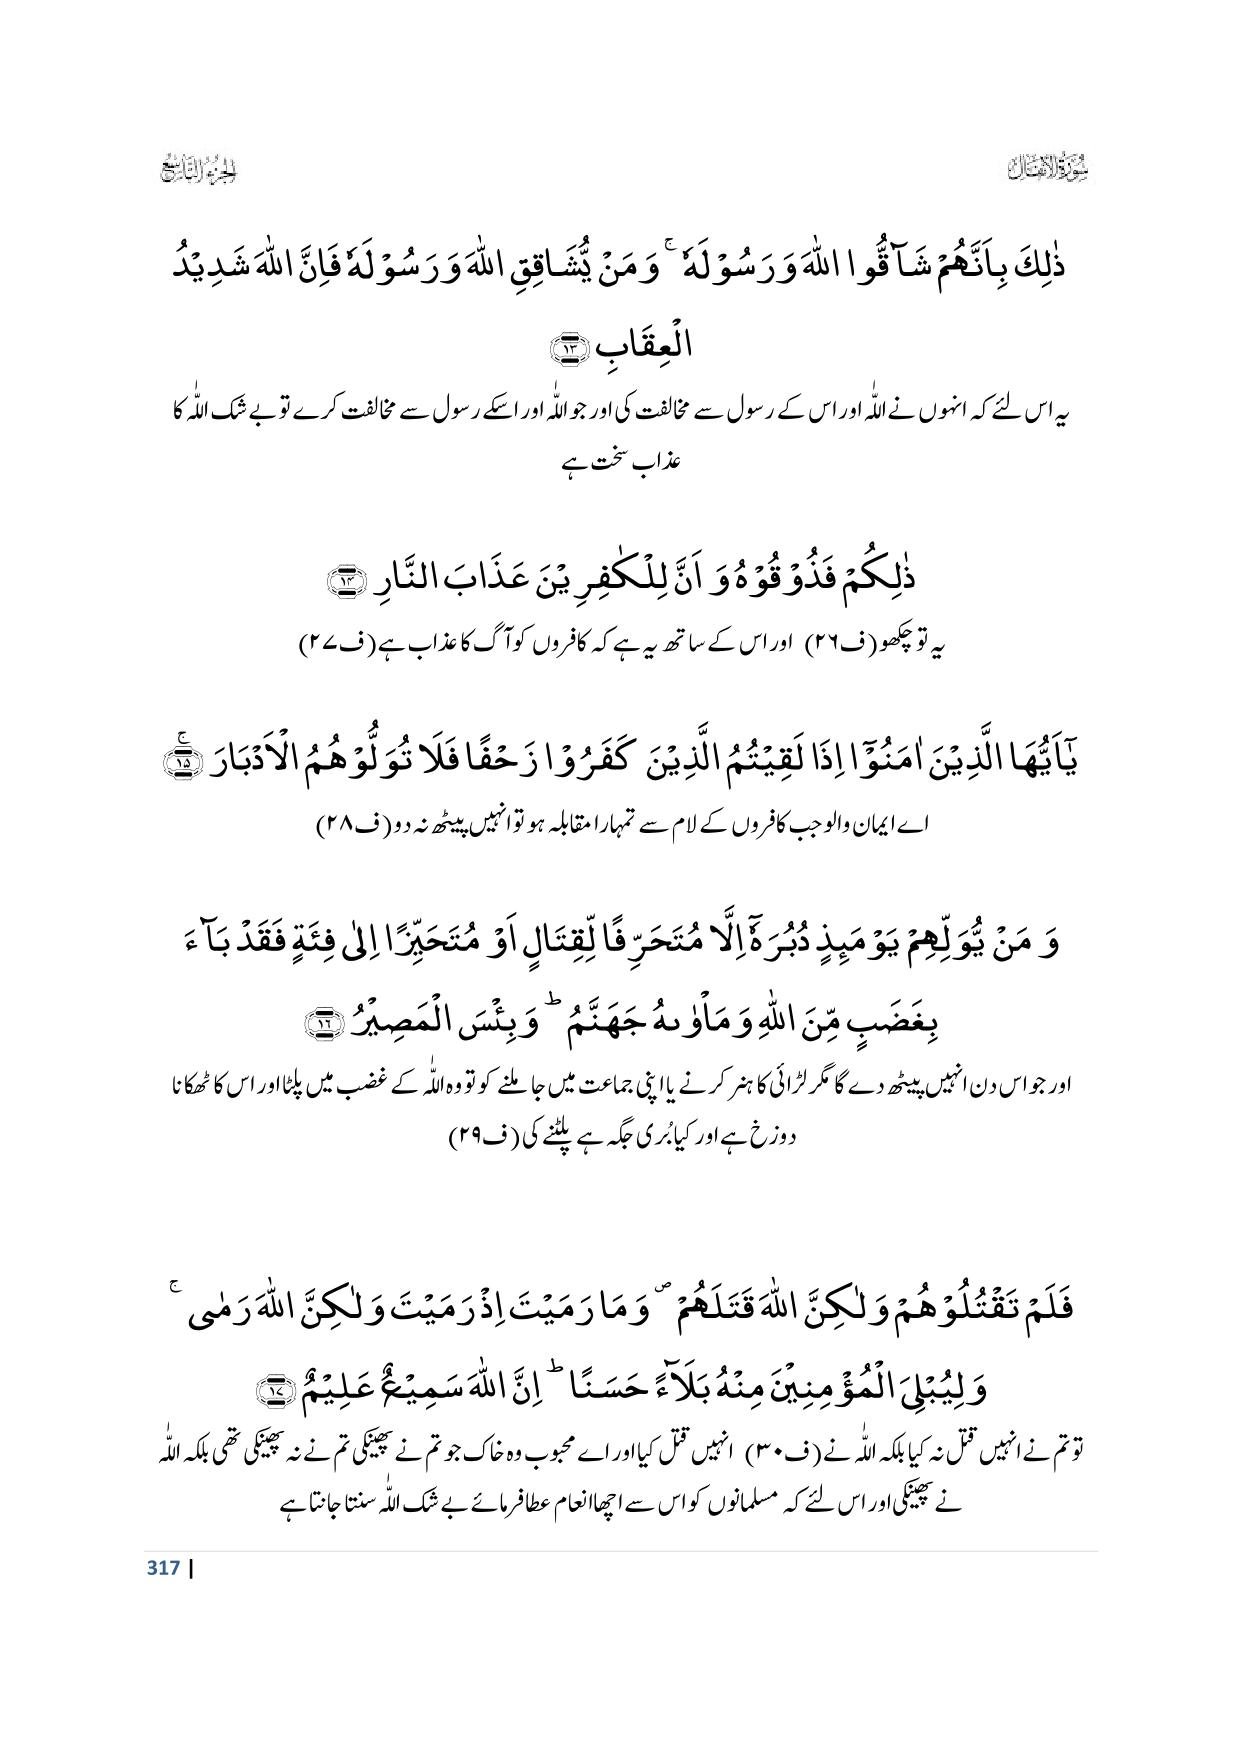 سُوْرَةُ الْاَنْفَال
الجزء التاسع
ذٰلِکَ بِاَنَّہُمْ شَآقُّوا اللہَ وَرَسُوْلَہٗ ۚ وَمَنْ یُّشَاقِقِ اللہَ وَرَسُوْلَہٗ فَاِنَّ اللہَ شَدِیْدُ
الْعِقَابِ ﴿۱۳﴾
یہ اس لئے کہ انہوں نے اللّٰہ اور اس کے رسول سے مخالفت کی اور جو اللّٰہ اور اسکے رسول سے مخالفت کرے تو بے شک اللّٰہ کا
عذاب سخت ہے
ذٰلِکُمْ فَذُوْقُوْہُ وَ اَنَّ لِلْکٰفِرِیْنَ عَذَابَ النَّارِ ﴿۱۴﴾
یہ تو چکھو (ف۲۶) اور اس کے ساتھ یہ ہے کہ کافروں کو آگ کا عذاب ہے (ف۲۷)
یٰۤاَیُّہَا الَّذِیْنَ اٰمَنُوْۤا اِذَا لَقِیْتُمُ الَّذِیْنَ کَفَرُوْا زَحْفًا فَلَا تُوَلُّوْہُمُ الْاَدْبَارَ ﴿ۚ۱۵﴾
اے ایمان والو جب کافروں کے لام سے تمہارا مقابلہ ہو تو انہیں پیٹھ نہ دو (ف۲۸)
وَ مَنْ یُّوَلِّہِمْ یَوْمَئِذٍ دُبُرَہٗۤ اِلَّا مُتَحَرِّفًا لِّقِتَالٍ اَوْ مُتَحَیِّزًا اِلٰی فِئَۃٍ فَقَدْ بَآءَ
بِغَضَبٍ مِّنَ اللہِ وَ مَاْوٰىہُ جَہَنَّمُ ؕ وَ بِئْسَ الْمَصِیْرُ ﴿۱۶﴾
اور جو اس دن انہیں پیٹھ دے گا مگر لڑائی کا ہنر کرنے یا اپنی جماعت میں جا ملنے کو تو وہ اللّٰہ کے غضب میں پلٹا اور اس کا ٹھکانا
دوزخ ہے اور کیا بُری جگہ ہے پلٹنے کی (ف۲۹)
فَلَمْ تَقْتُلُوْہُمْ وَلٰکِنَّ اللہَ قَتَلَہُمْ ۪ وَمَا رَمَیْتَ اِذْ رَمَیْتَ وَلٰکِنَّ اللہَ رَمٰی ۚ
وَلِیُبْلِیَ الْمُؤْمِنِیْنَ مِنْہُ بَلَآءً حَسَنًا ؕ اِنَّ اللہَ سَمِیْعٌ عَلِیْمٌ ﴿۱۷﴾
تو تم نے انہیں قتل نہ کیا بلکہ اللّٰہ نے (ف۳۰) انہیں قتل کیا اور اے محبوب وہ خاک جو تم نے پھینکی تم نے نہ پھینکی تھی بلکہ اللّٰہ
نے پھینکی اور اس لئے کہ مسلمانوں کو اس سے اچھا انعام عطا فرمائے بے شک اللّٰہ سنتا جانتا ہے
317 |